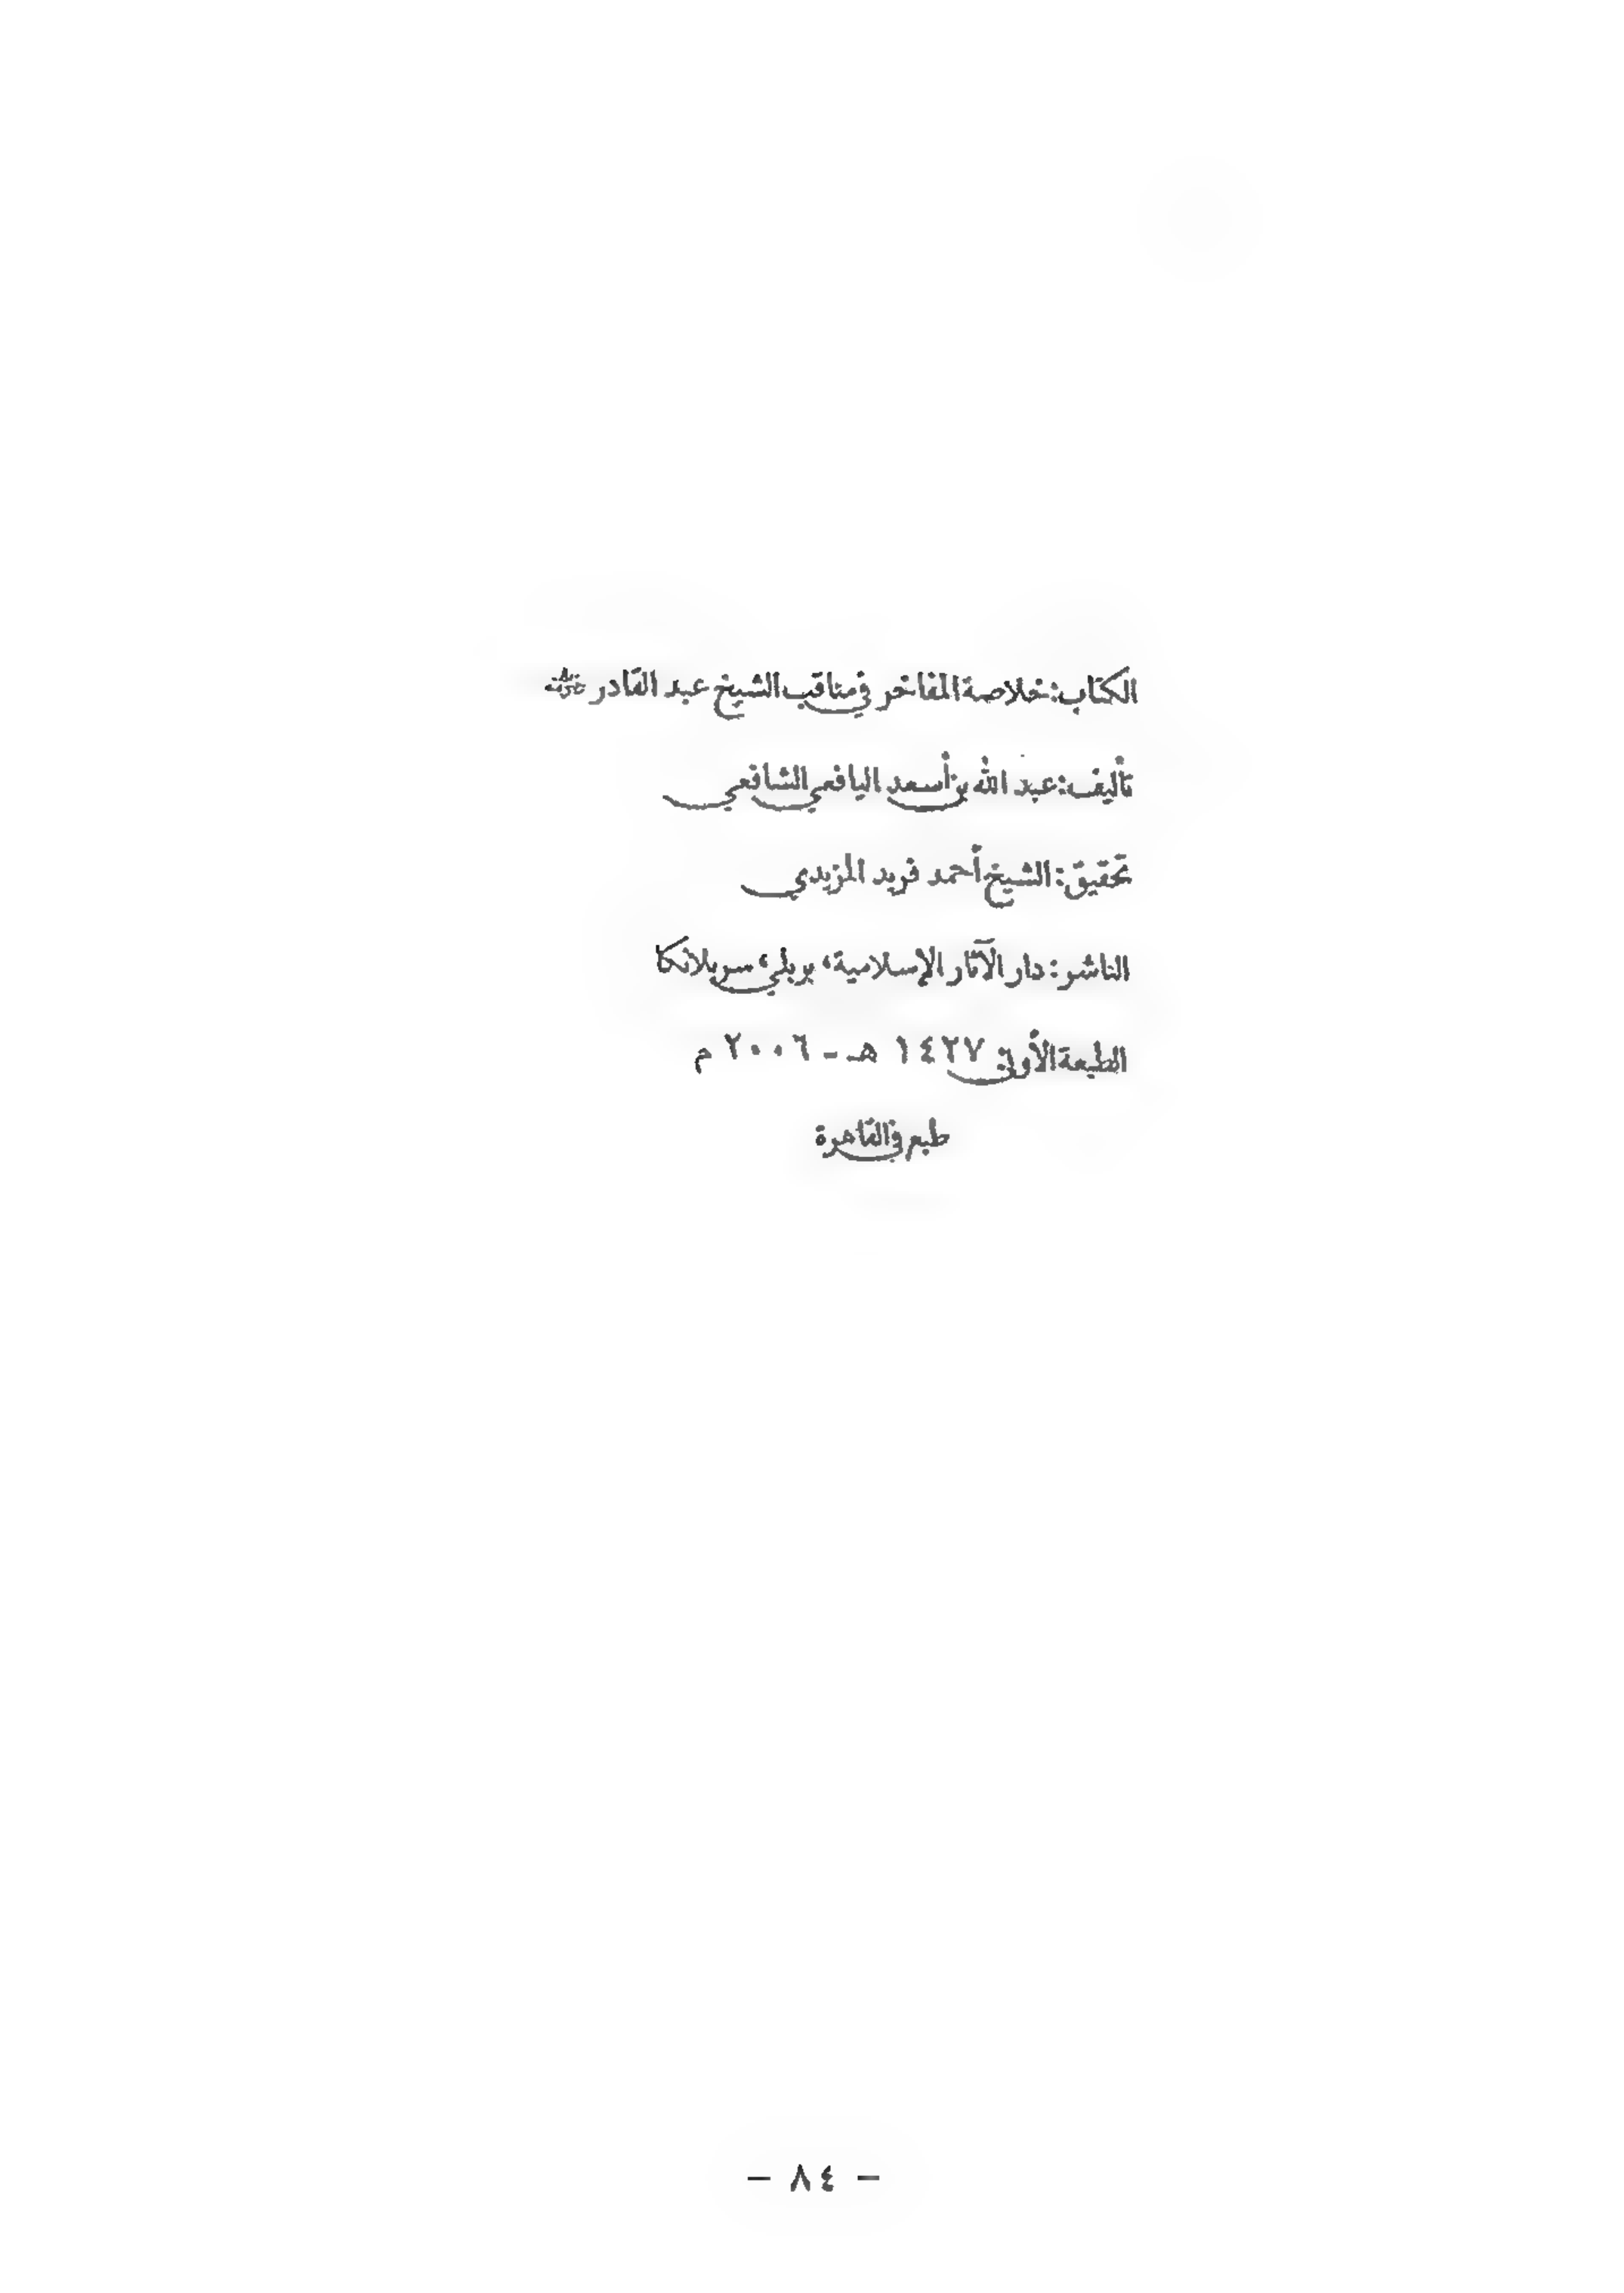 الكتاب: خلاصة المفاخر في مناقب الشيخ عبد القادر رضي الله عنه
تأليف: عبد الله بن أسعد اليافعي الشافعي
تحقيق: الشيخ أحمد فريد المزيدي
الناشر: دار الآثار الإسلامية، بريلي، سريلانكا
الطبعة الأولى ١٤٢٧ هـ - ٢٠٠٦ م
طبع في القاهرة
– ٨٤ –